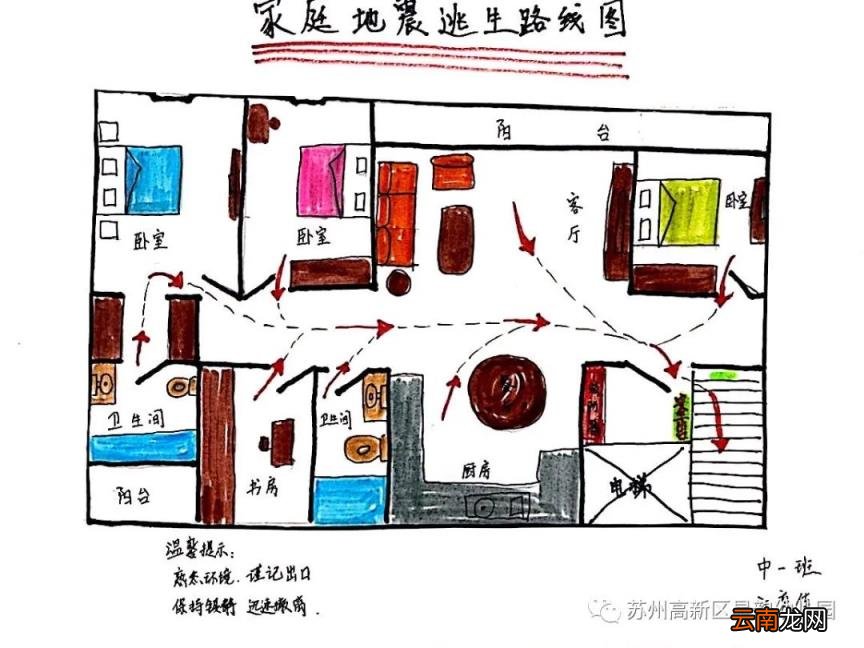 家庭地震逃生路线图
阳 台
客厅
卧室
卧室
卧室
卫生间
卫生间
阳台
书房
厨房
电梯
温馨提示：
熟悉环境．谨记出口
保持镇静 迅速撤离．
中一班
苏州高新区
云南龙网